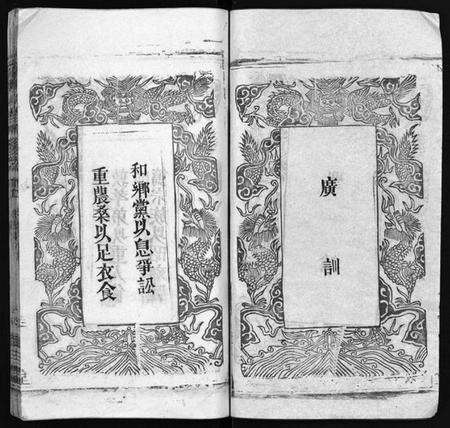 廣訓
和鄉黨以息爭訟
重農桑以足衣食